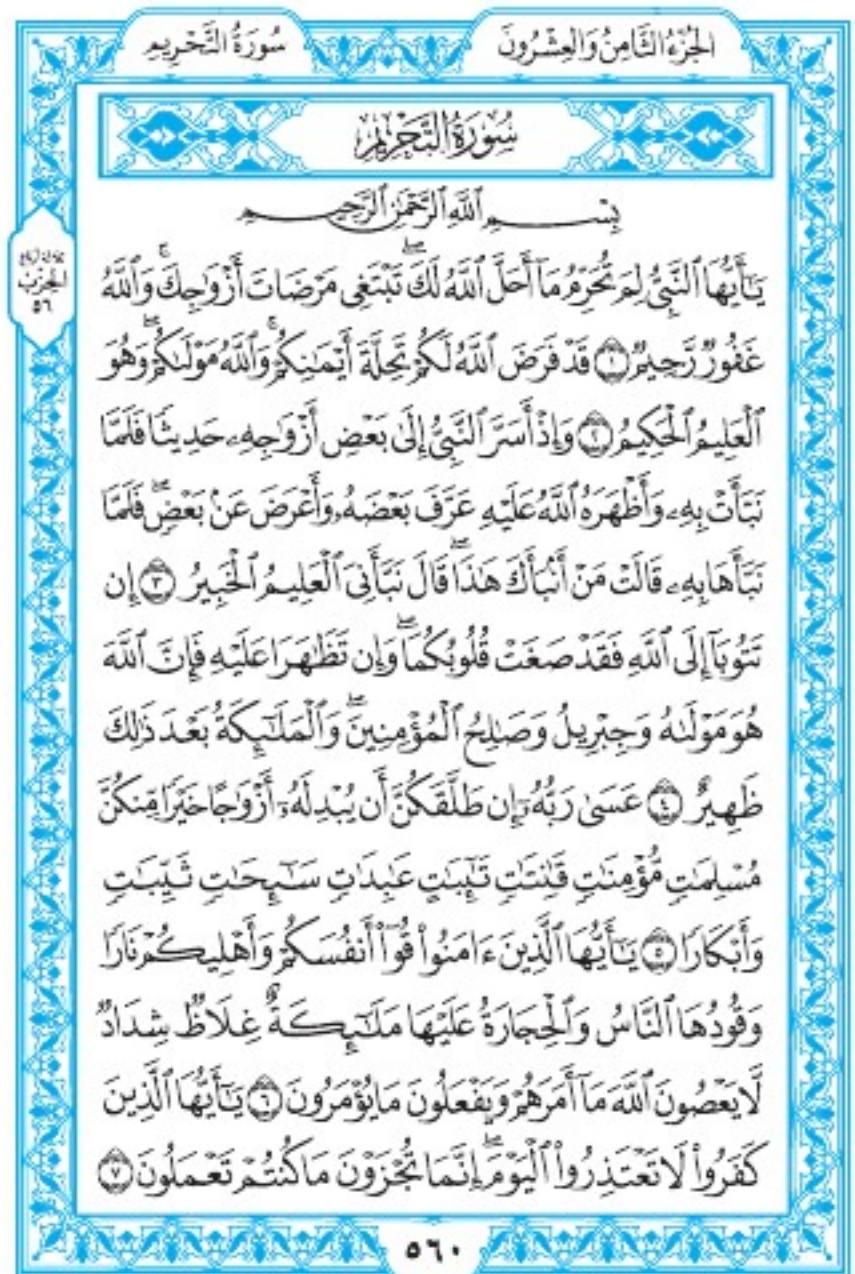 سُورَةُ التَّحْرِيمِ الجُزْءُ الثَّامِنُ وَالعِشْرُونَ
سُورَةُ التَّحْرِيمِ
بِسْمِ ٱللَّهِ ٱلرَّحْمَٰنِ ٱلرَّحِيمِ
يَٰٓأَيُّهَا ٱلنَّبِىُّ لِمَ تُحَرِّمُ مَآ أَحَلَّ ٱللَّهُ لَكَۖ تَبْتَغِى مَرْضَاتَ أَزْوَٰجِكَۚ وَٱللَّهُ
غَفُورٌ رَّحِيمٌ ١ قَدْ فَرَضَ ٱللَّهُ لَكُمْ تَحِلَّةَ أَيْمَٰنِكُمْۚ وَٱللَّهُ مَوْلَىٰكُمْۖ وَهُوَ
ٱلْعَلِيمُ ٱلْحَكِيمُ ٢ وَإِذْ أَسَرَّ ٱلنَّبِىُّ إِلَىٰ بَعْضِ أَزْوَٰجِهِۦ حَدِيثًا فَلَمَّا
نَبَّأَتْ بِهِۦ وَأَظْهَرَهُ ٱللَّهُ عَلَيْهِ عَرَّفَ بَعْضَهُۥ وَأَعْرَضَ عَنۢ بَعْضٍۖ فَلَمَّا
نَبَّأَهَا بِهِۦ قَالَتْ مَنْ أَنۢبَأَكَ هَٰذَاۖ قَالَ نَبَّأَنِىَ ٱلْعَلِيمُ ٱلْخَبِيرُ ٣ إِن
تَتُوبَآ إِلَى ٱللَّهِ فَقَدْ صَغَتْ قُلُوبُكُمَاۖ وَإِن تَظَٰهَرَا عَلَيْهِ فَإِنَّ ٱللَّهَ
هُوَ مَوْلَىٰهُ وَجِبْرِيلُ وَصَٰلِحُ ٱلْمُؤْمِنِينَۖ وَٱلْمَلَٰٓئِكَةُ بَعْدَ ذَٰلِكَ
ظَهِيرٌ ٤ عَسَىٰ رَبُّهُۥٓ إِن طَلَّقَكُنَّ أَن يُبْدِلَهُۥٓ أَزْوَٰجًا خَيْرًا مِّنكُنَّ
مُسْلِمَٰتٍ مُّؤْمِنَٰتٍ قَٰنِتَٰتٍ تَٰٓئِبَٰتٍ عَٰبِدَٰتٍ سَٰٓئِحَٰتٍ ثَيِّبَٰتٍ
وَأَبْكَارًا ٥ يَٰٓأَيُّهَا ٱلَّذِينَ ءَامَنُوا۟ قُوٓا۟ أَنفُسَكُمْ وَأَهْلِيكُمْ نَارًا
وَقُودُهَا ٱلنَّاسُ وَٱلْحِجَارَةُ عَلَيْهَا مَلَٰٓئِكَةٌ غِلَاظٌ شِدَادٌ
لَّا يَعْصُونَ ٱللَّهَ مَآ أَمَرَهُمْ وَيَفْعَلُونَ مَا يُؤْمَرُونَ ٦ يَٰٓأَيُّهَا ٱلَّذِينَ
كَفَرُوا۟ لَا تَعْتَذِرُوا۟ ٱلْيَوْمَۖ إِنَّمَا تُجْزَوْنَ مَا كُنتُمْ تَعْمَلُونَ ٧
الحِزْبُ
٥٦
٥٦٠